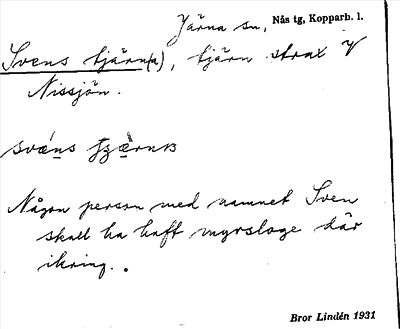 Järna sn, Nås tg, Kopparb. l.
Svens tjärn(a), tjärn strax V
Nissjön.
Någon person med namnet Sven
skall ha haft myrsloge där
ikring.
Bror Lindén 1931